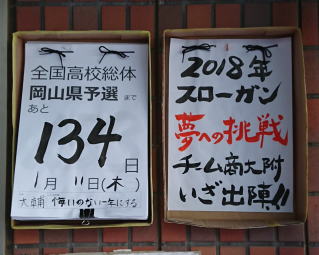 全国高校総体
岡山県予選まで
あと
134日
1月11日(木)
大輔 悔いのない一年にする
2018年
スローガン
夢への挑戦
チーム商大附
いざ出陣!!